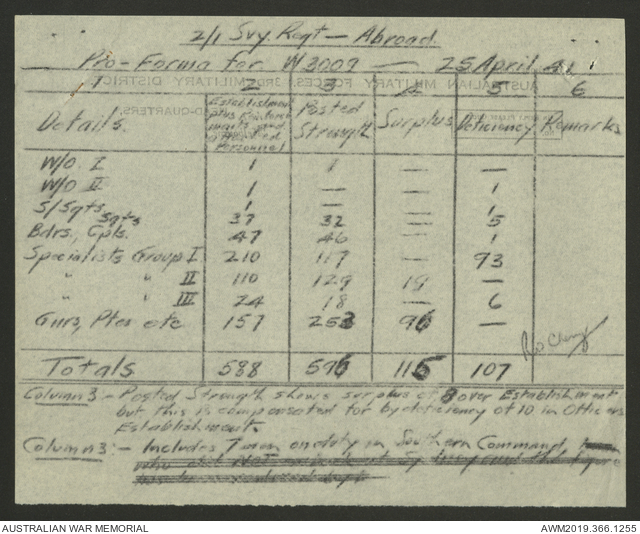 2/1 Svy. Regt — Abroad.
Pro-Forma for W3009 — 25 April 41
AUSTRALIAN MILITARY FORCES, 3RD MILITARY DISTRICT
1 2 3 4 5 6
Details. Establishment plus Reinforcements and Attached Personnel Posted Strength Surplus Deficiency Remarks
W/O. I 1 1 — —
W/O II 1 — — 1
S/Sgts 1 — — 1
Sgts 37 32 — 5
Bdrs, Cpls. 47 46 — 1
Specialists Group I 210 117 — 93
" " II 110 129 19 —
" " III 24 18 — 6
Gnrs, Ptes etc 157 253 96 —
Totals 588 596 115 107
Column 3 - Posted Strength shews surplus of 8 over Establishment
but this is compensated for by deficiency of 10 in Officers
Establishment.
Column 3 :- Includes 7 men on duty in Southern Command,